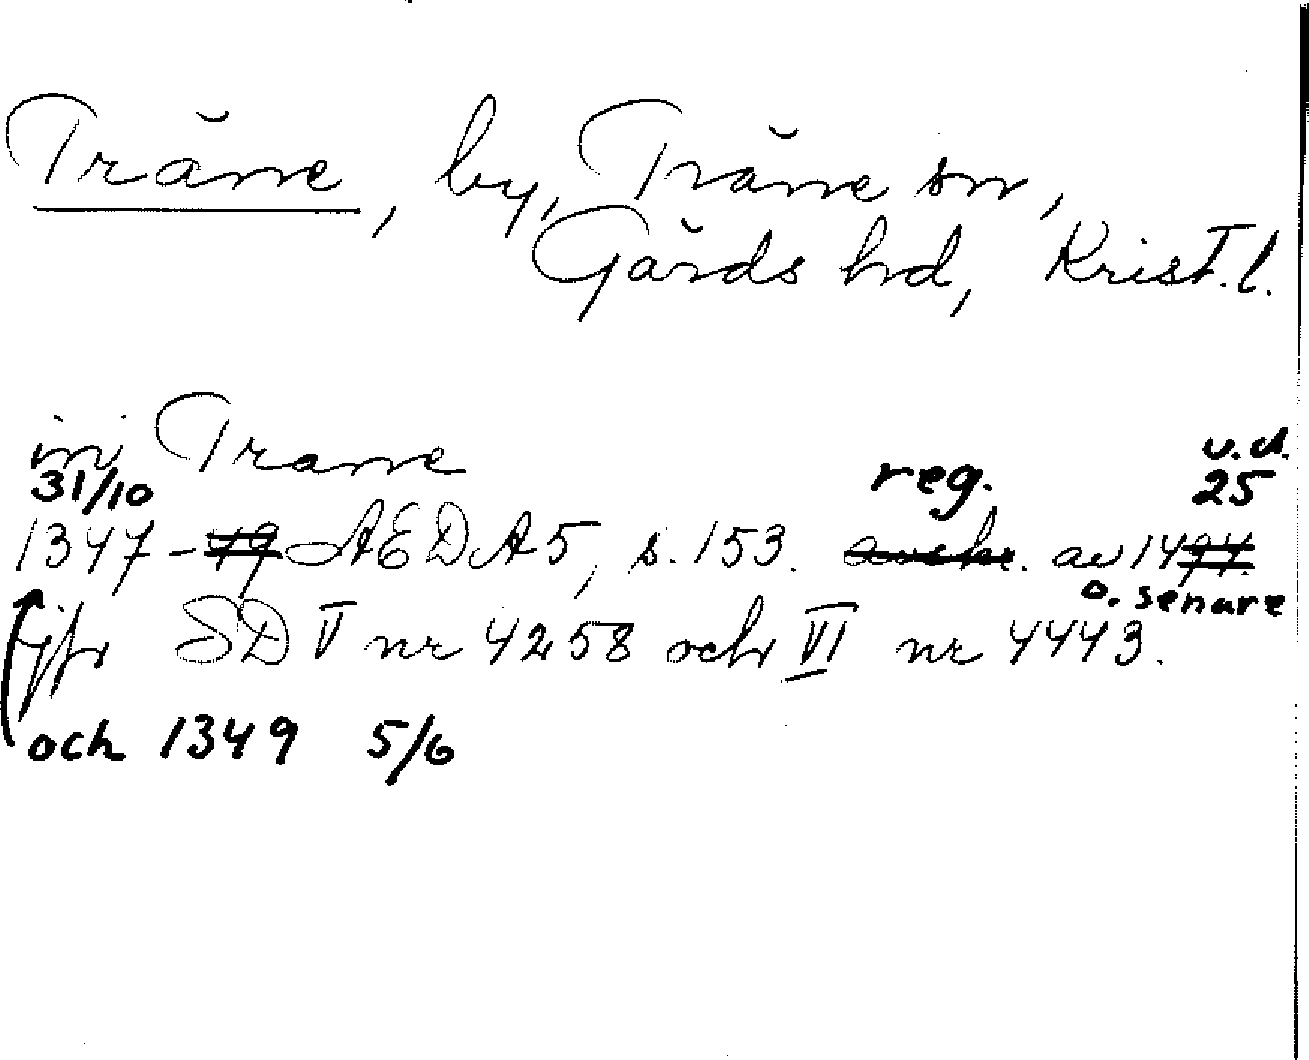 Träne, by, Träne sn,
Gärds hd, Krist. l.
in Trane
31/10 reg. u. d. 25
1347-49 AEDA5, s. 153. avskr. av 1494.
o. senare
jfr SD V nr 4258 och VI nr 4443.
och 1349 5/6